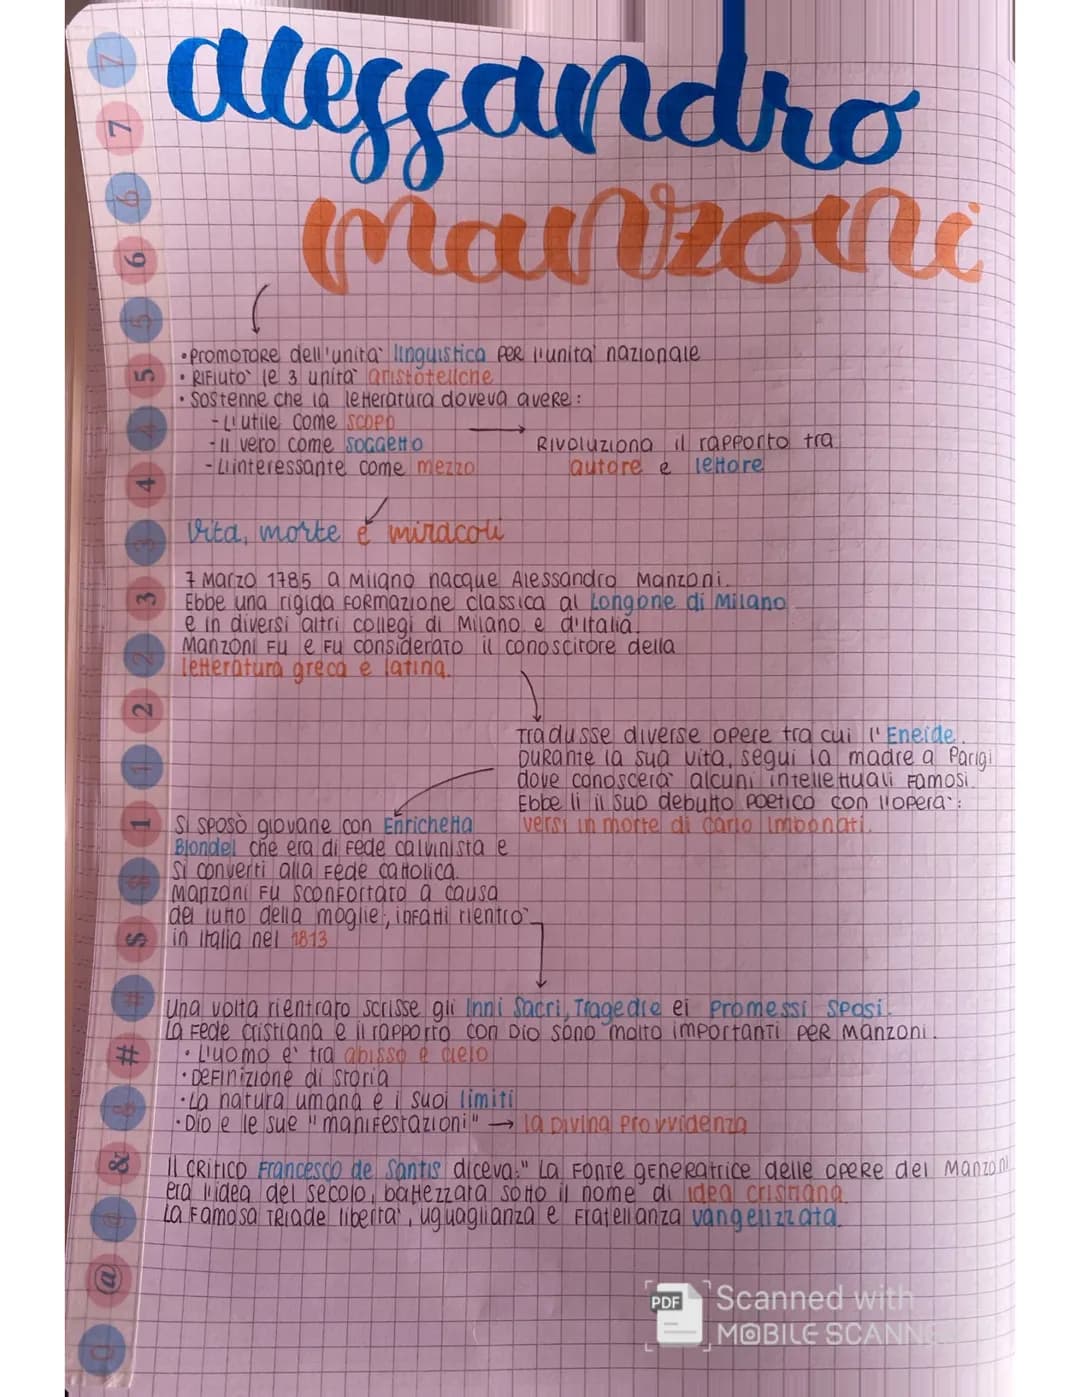 alessandro
manzoni
• Promotore dell'unità linguistica per l'unità nazionale
• Rifiutò le 3 unità aristoteliche
• Sostenne che la letteratura doveva avere:
- L'utile come scopo
- Il vero come soggetto
- L'interessante come mezzo
→ Rivoluziona il rapporto tra
autore e lettore
Vita, morte e miracoli
7 Marzo 1785 a Milano nacque Alessandro Manzoni.
Ebbe una rigida formazione classica al Longone di Milano
e in diversi altri collegi di Milano e d'Italia.
Manzoni fu e fu considerato il conoscitore della
letteratura greca e latina.
Tradusse diverse opere tra cui l'Eneide.
Durante la sua vita, seguì la madre a Parigi
dove conoscerà alcuni intellettuali famosi.
Ebbe lì il suo debutto poetico con l'opera:
versi in morte di carlo Imbonati.
Si sposò giovane con Enrichetta
Blondel che era di fede calvinista e
si convertì alla fede cattolica.
Manzoni fu sconfortato a causa
del lutto della moglie, infatti rientrò
in Italia nel 1813
Una volta rientrato scrisse gli Inni Sacri, Tragedie ei Promessi Sposi.
La fede cristiana e il rapporto con Dio sono molto importanti per Manzoni.
• L'uomo è tra abisso e cielo
• Definizione di storia
• La natura umana e i suoi limiti
• Dio e le sue "manifestazioni" → la Divina Provvidenza
Il critico Francesco de Santis diceva: "La fonte generatrice delle opere del Manzoni
era l'idea del secolo, battezzata sotto il nome di idea cristiana.
La famosa triade libertà, uguaglianza e fratellanza vangelizzata.
7
7
6
6
5
5
4
4
3
3
2
2
1
1
$
$
#
#
&
&
@
@
PDF
Scanned with
MOBILE SCANNER